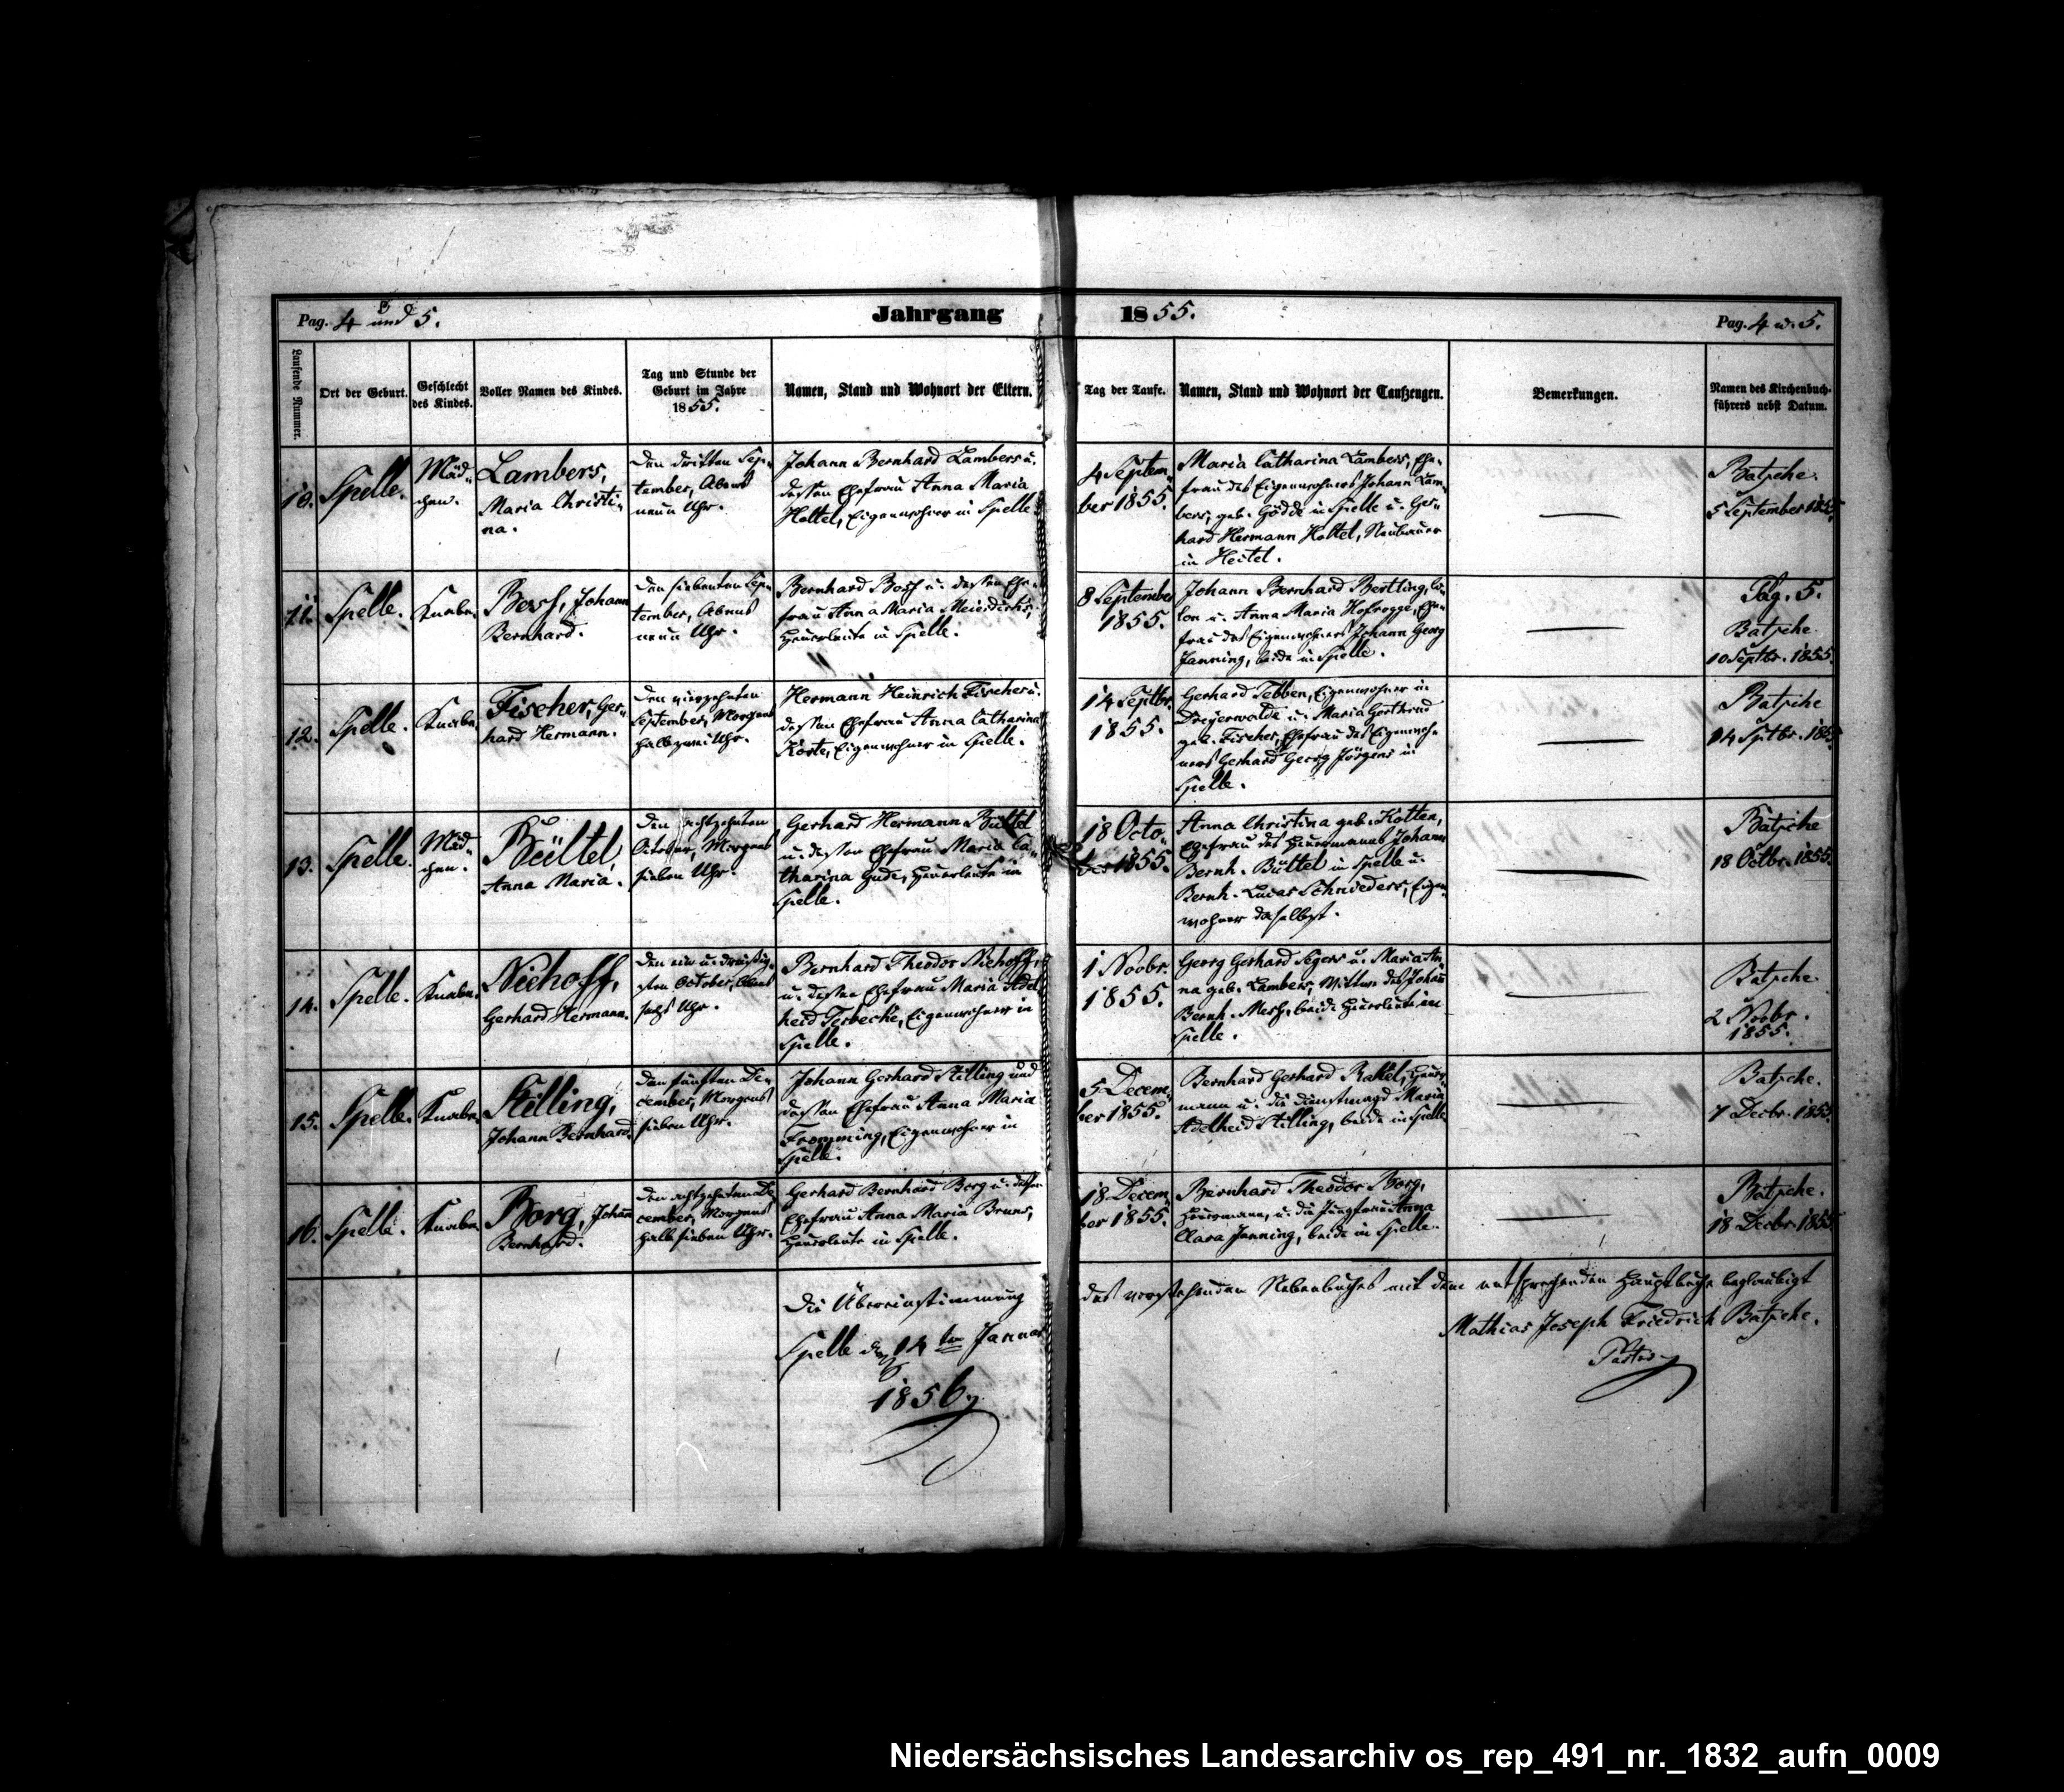 Pag. 4 und 5.
Jahrgang
1855.
Pag. 4 u. 5.
Laufende Nummer.
Ort der Geburt.
Geschlecht
des Kindes.
Voller Namen des Kindes.
Tag und Stunde der
Geburt im Jahre
1855.
Namen, Stand und Wohnort der Eltern.
Tag der Taufe.
Namen, Stand und Wohnort der Taufzeugen.
Bemerkungen.
Namen des Kirchenbuch-
führers nebst Datum.
10.
Spelle.
Mäd-
chen.
Lambers,
Maria Christi-
na.
Den dritten Sep-
tember, Abends
neun Uhr.
Johann Bernhard Lambers u.
dessen Ehefrau Anna Maria
Holtel, Eigenwohner in Spelle.
4 Septem-
ber 1855.
Maria Catharina Lambers, Ehe-
frau des Eigenwohners Johann Lam-
bers, geb. Gödde in Spelle u. Ger-
hard Hermann Holtel, Neubauer
in Heitel.
Batsche.
5 September 1855.
11.
Spelle.
Knabe.
Johann
Bernhard.
Den siebenten Sep-
tember, Abends
neun Uhr.
Bernhard u. dessen Ehe-
frau Anna Maria Meiedirks,
Heuerleute in Spelle.
8 September
1855.
Johann Bernhard Bertling, Co-
lon u. Anna Maria Hofrogge, Ehe-
frau des Eigenwohners Johann Georg
Janning, beide in Spelle.
Pag. 5.
Batsche
10 Septbr. 1855.
12.
Spelle.
Knabe.
Fischer, Ger-
hard Hermann.
Den vierzehnten
September, Morgens
halb zwei Uhr.
Hermann Heinrich Fischer u.
dessen Ehefrau Anna Catharina
Köste, Eigenwohner in Spelle.
14 Septbr.
1855.
Gerhard Tebben, Eigenwohner in
Dreyerwalde u. Maria Gerthrud
geb. Fischer, Ehefrau des Eigenwoh-
ners Gerhard Georg Jörgens in
Spelle.
Batsche
14 Sptbr. 1855
13.
Spelle.
Mäd-
chen.
Bültel,
Anna Maria.
Den achtzehnten
October, Morgens
sieben Uhr.
Gerhard Hermann Bültel
u. dessen Ehefrau Maria Ca-
tharina Gude, Heuerleute in
Spelle.
18 Octo-
ber 1855.
Anna Christina geb. Kotten,
Ehefrau des Heuermannes Johann
Bernh. Bültel in Spelle u.
Bernh. Lucas Schnieders, Eigen-
wohner daselbst.
Batsche
18 Octbr. 1855.
14.
Spelle.
Knabe.
Niehoff,
Gerhard Hermann.
Den ein u. dreißig-
sten October, Abends
sechs Uhr.
Bernhard Theodor Niehoff
u. dessen Ehefrau Maria Adel-
heid Terbecke, Eigenwohner in
Spelle.
1 Novbr.
1855.
Georg Gerhard Segers u. Maria An-
na geb. Lambers, Wittwe des Johann
Bernh. Mersch, beide Heuerleute in
Spelle.
Batsche
2 Novbr.
1855.
15.
Spelle.
Knabe.
Stilling,
Johann Bernhard.
Den fünften De-
cember, Morgens
sieben Uhr.
Johann Gerhard Stilling und
dessen Ehefrau Anna Maria
Fromming, Eigenwohner in
Spelle.
5 Decem-
ber 1855.
Bernhard Gerhard Rakel, Heuer-
mann u. die Dienstmagd Maria
Adelheid Stilling, beide in Spelle
Batsche.
7 Decbr. 1855.
16.
Spelle.
Knabe.
Borg, Johann
Bernhard.
Den achtzehnten De-
cember, Morgens
halb sieben Uhr.
Gerhard Bernhard Borg u. dessen
Ehefrau Anna Maria Bruns,
Heuerleute in Spelle.
18 Decem-
ber 1855.
Bernhard Theodor Borg,
Heuermann, u. die Jungfrau Anna
Clara Janning, beide in Spelle.
Batsche.
18 Decbr 1855
Die Übereinstimmung des vorstehenden Nebenbuches mit dem entsprechenden Hauptbuche beglaubigt
Spelle den 14ten Januar
1856.
Mathias Joseph Friedrich Batsche.
Pastor
Niedersächsisches Landesarchiv os_rep_491_nr._1832_aufn_0009